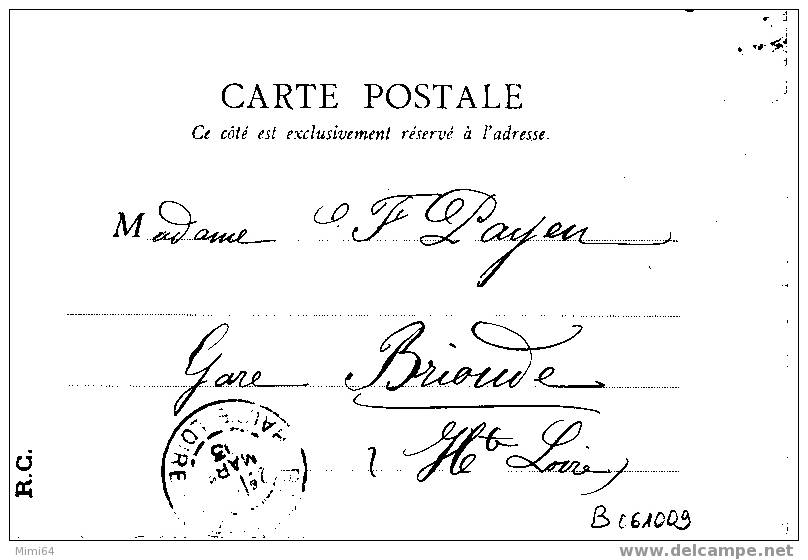 CARTE POSTALE
Ce côté est exclusivement réservé à l'adresse.
Madame F Payen
Gare Brioude
Hte Loire
HAUTE LOIRE
MAR
R.C.
B c61009
Mimi64
www.delcampe.net